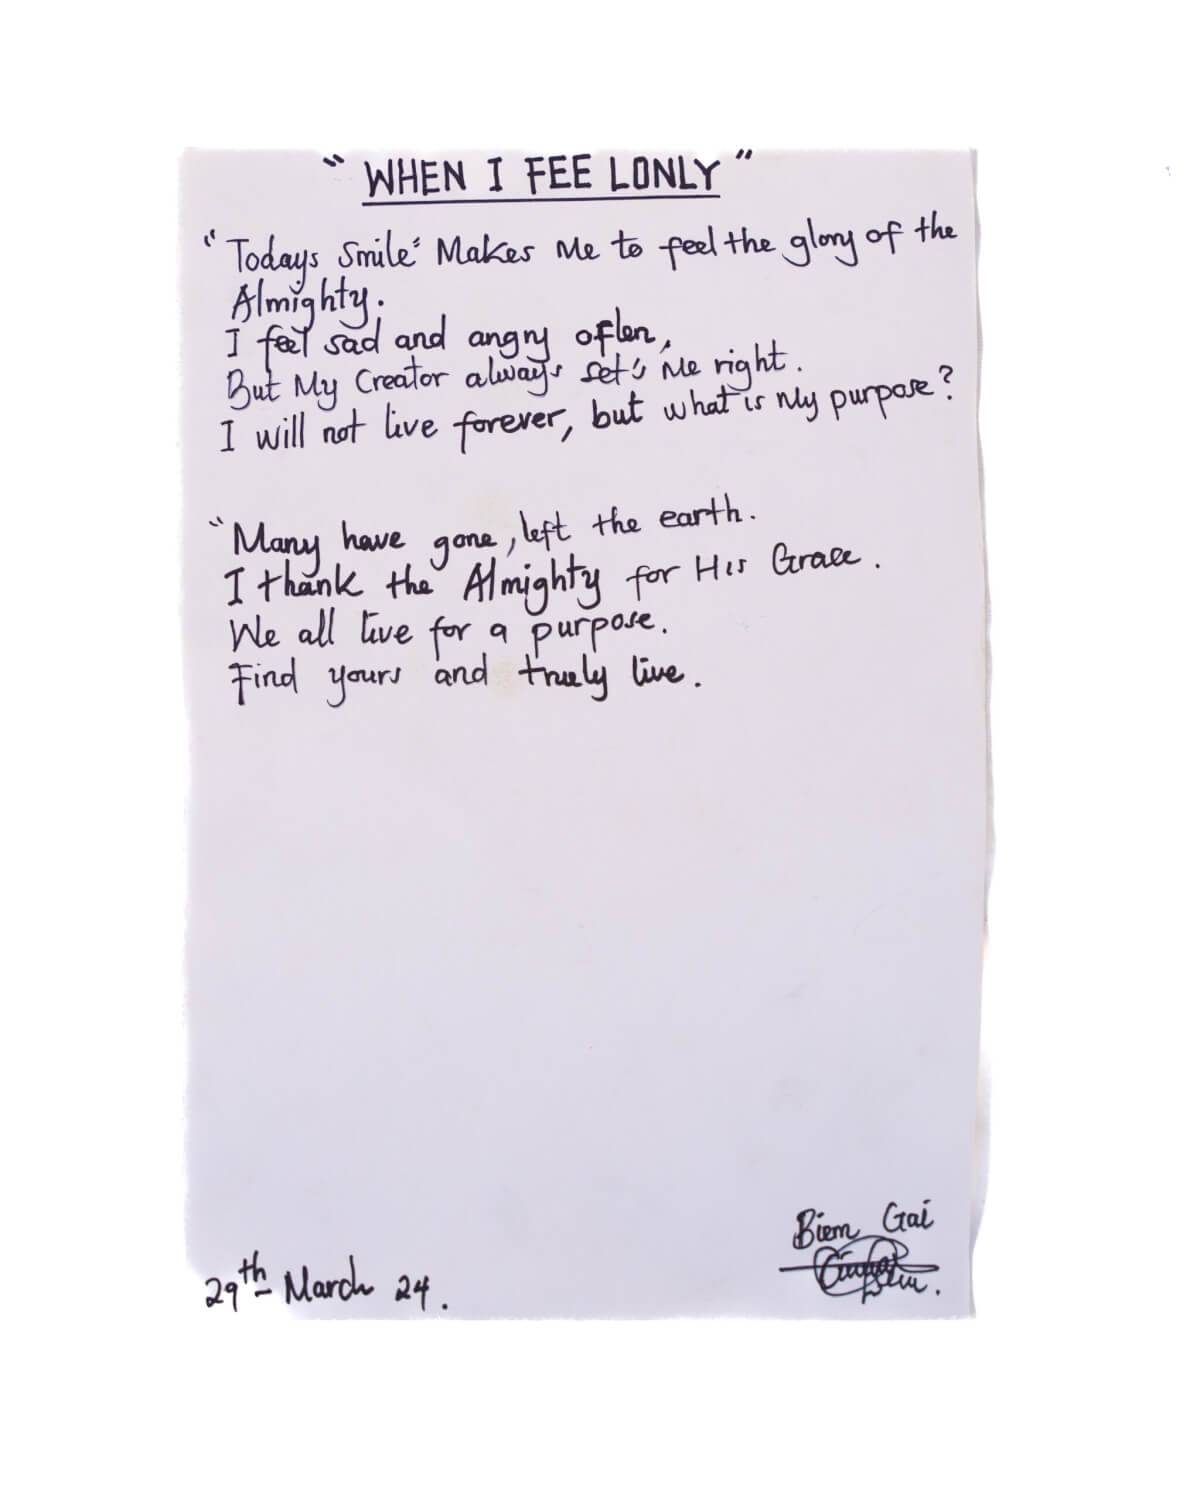 "WHEN I FEE LONLY"
"Todays Smile" Makes Me to feel the glory of the
Almighty.
I feel sad and angry often,
But My Creator always set's Me right.
I will not live forever, but what is My purpose?
"Many have gone, left the earth.
I thank the Almighty for His Grace.
We all live for a purpose.
Find yours and truely live.
Biem Gai
29th March 24.